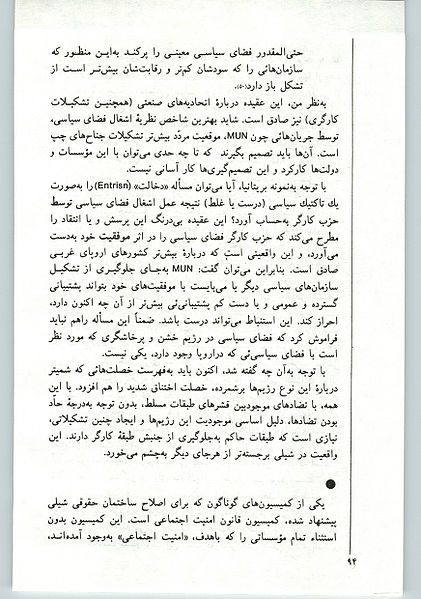 حتی‌المقدور فضای سیاسـی معینـی را پرکنـد به‌ایـن منظـور که
سازمان‌هائی را که سودشان کم‌تر و رقابت‌شان بیش‌تـر اسـت از
تشکل باز دارد(۵۰).
به‌نظر من، این عقیده دربارهٔ اتحادیه‌های صنعتی (همچنیـن تشکیلات
کارگری) نیز صادق است. شاید بهترین شاخص نظریهٔ اشغال فضای سیاسی،
توسط جریان‌هائی چون MUN، موقعیت مردّد بیش‌تر تشکیلات جناح‌های چپ
است. آن‌ها باید تصمیم بگیرند که تا چه حدی می‌توان با این مؤسسات و
دولت‌ها کارکرد و این تصمیم‌گیری‌ها کار آسانی نیست.
با توجه به‌نمونه بریتانیا، آیا می‌توان مسأله «دخالت» (Entrisn) را به‌صورت
یك تاکتیك سیاسی (درست یا غلط) نتیجه عمل اشغال فضای سیاسی توسط
حزب کارگر به‌حساب آورد؟ این عقیده بی‌درنگ این پرسش و یا انتقاد را
مطرح می‌کند که حزب کارگر فضای سیاسی را در اثر موفقیت خود به‌دست
می‌آورد، و این واقعیتی است که دربارهٔ بیش‌تر کشورهای اروپای غربـی
صادق است. بنابراین می‌توان گفت: MUN به‌جـای جلوگیـری از تشکیـل
سازمان‌های سیاسی دیگر یا می‌بایست با موفقیت‌های خود بتواند پشتیبانی
گسترده و عمومی و یا دست کم پشتیبانی‌ئی بیش‌تر از آن چه اکنون دارد،
احراز کند. این استنباط می‌تواند درست باشد. ضمناً این مسأله راهم نباید
فراموش کرد که فضای سیاسی در رژیم خشن و پرخاشگری که مورد نظر
است با فضای سیاسی‌ئی که دراروپا وجود دارد، یکی نیست.
با توجه به‌آن چه گفته شد، اکنون باید به‌فهرست خصلت‌هائی که شمیتر
دربارهٔ این نوع رژیم‌ها برشمرده، خصلت اختناق شدید را هم افزود. با این
همه، با تضادهای موجودبین قشرهای طبقات مسلط، بدون توجه به‌درجهٔ حادّ
بودن تضادها، دلیل اساسی موجودیت این رژیم‌ها و ایجاد چنین تشکیلاتی،
نیازی است که طبقات حاکم به‌جلوگیری از جنبش طبقهٔ کارگر دارند. این
واقعیت در شیلی برجسته‌تر از هرجای دیگر به‌چشم می‌خورد.
یکی از کمیسیون‌های گوناگون که برای اصلاح ساختمان حقوقی شیلی
پیشنهاد شده، کمیسیون قانون امنیت اجتماعی است. این کمیسیون بدون
استثناء تمام مؤسساتی را که باهدف، «امنیت اجتماعی» به‌وجود آمده‌انـد،
۹۴